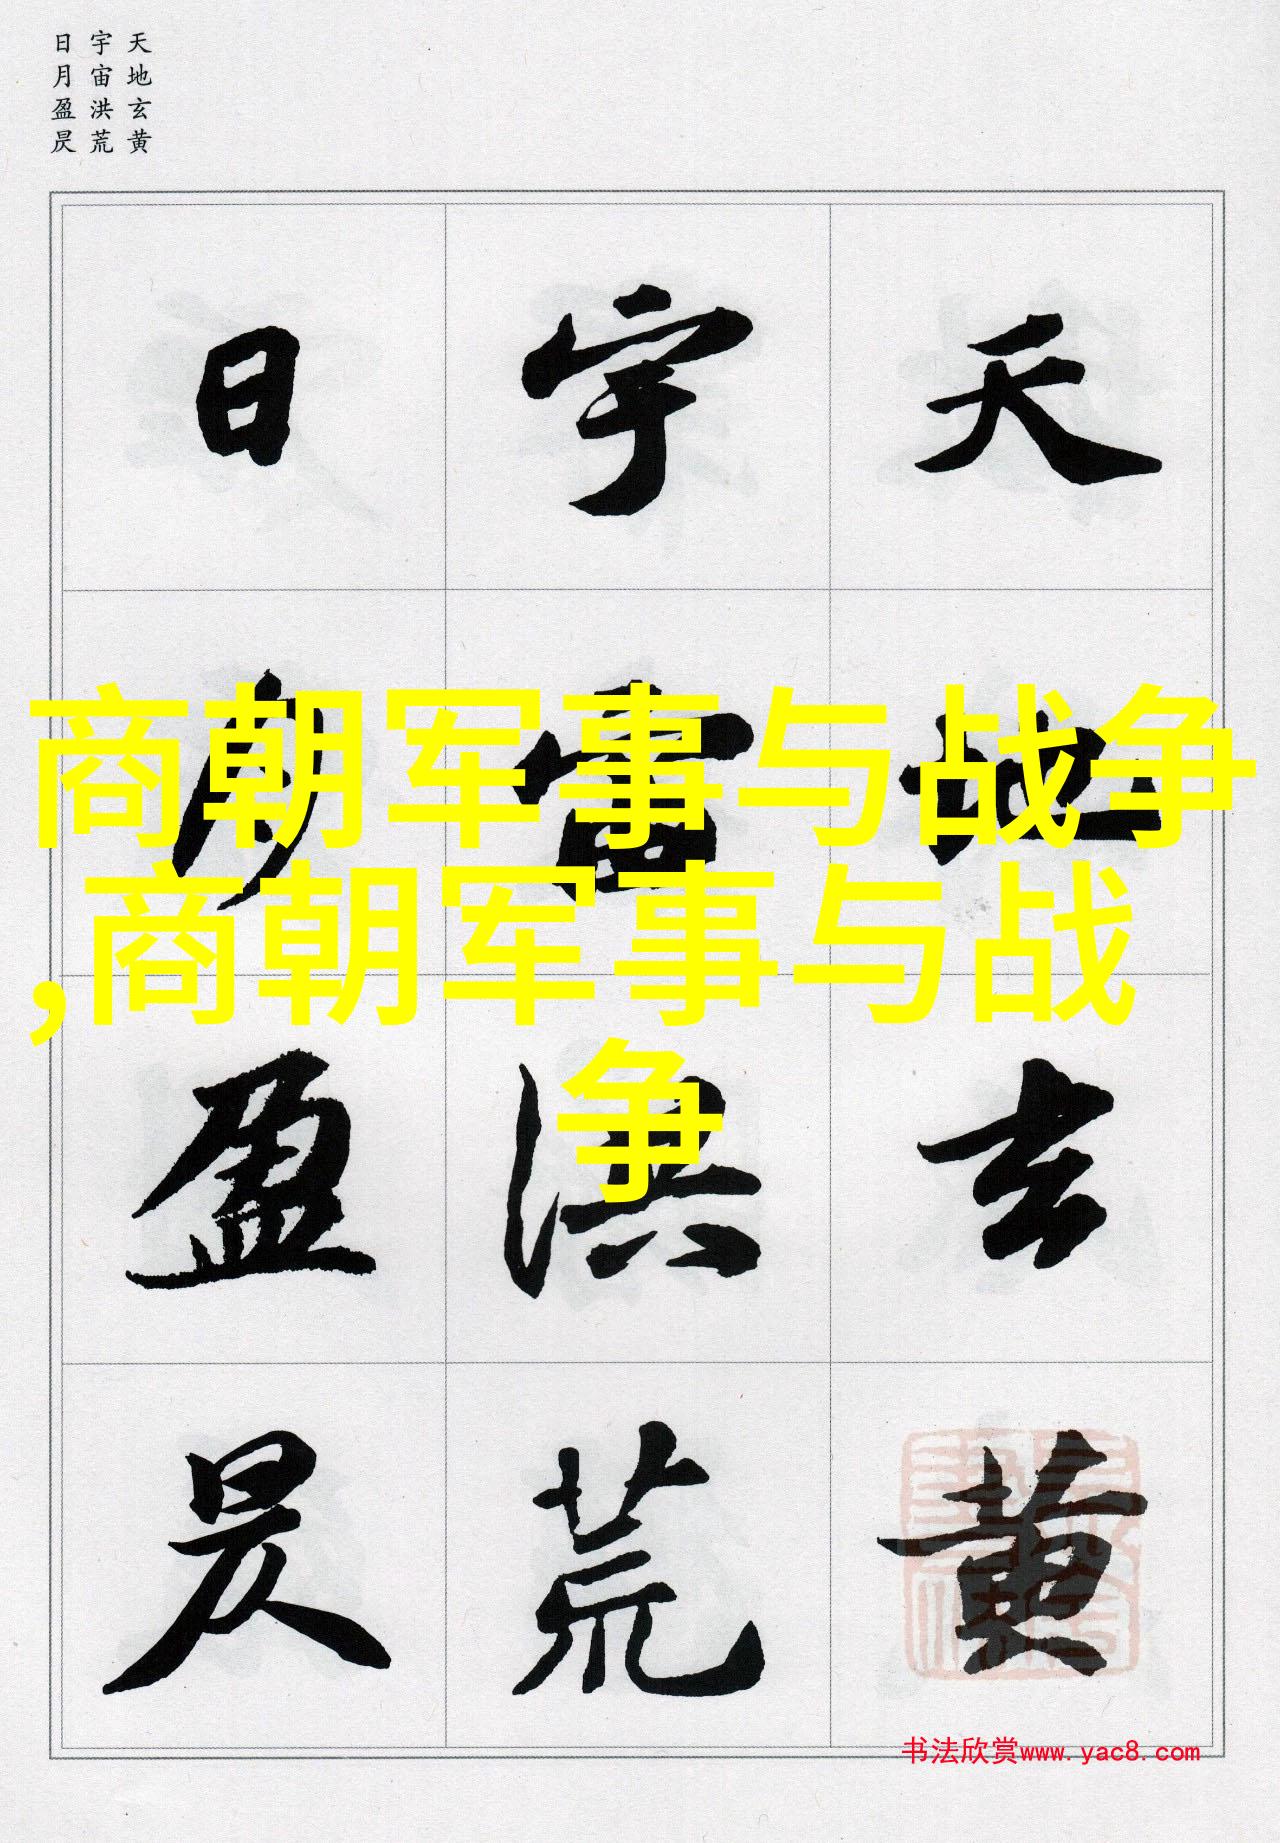 天地玄黄
宇宙洪荒
日月盈昃
天地玄黄
宇宙洪荒
日月盈昃
商朝军事与战争
,商朝军事与战
争
书法欣赏www.yac8.com